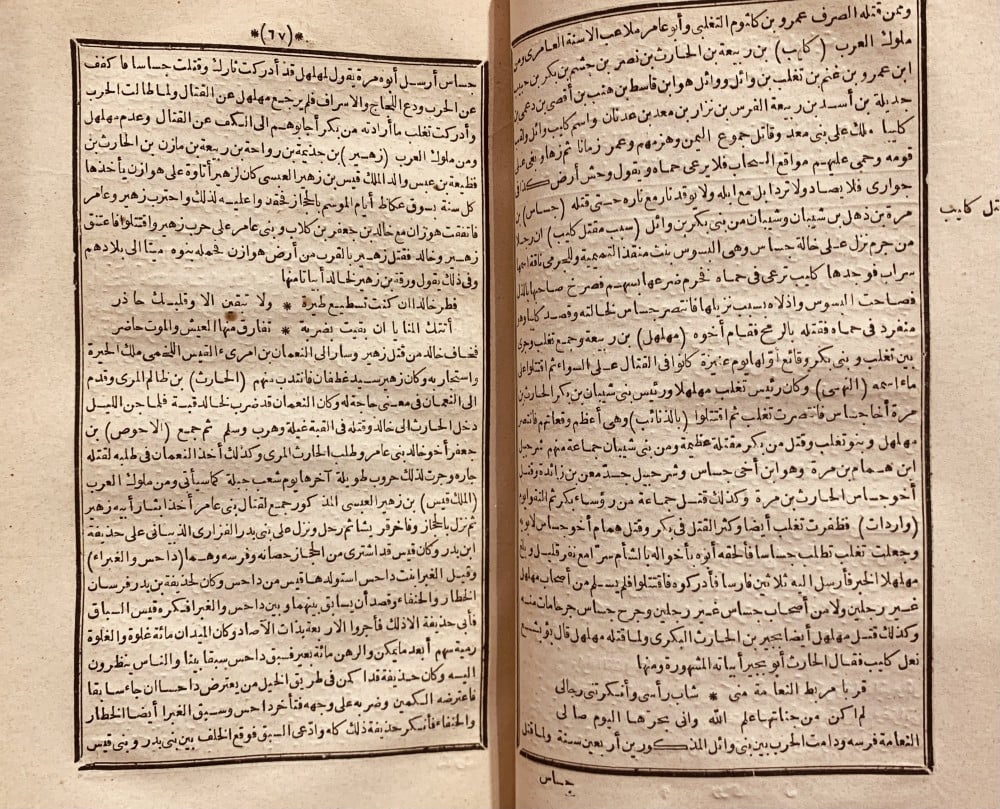 وممن قتله الصرف عمرو بن كلثوم التغلبي وأبو عامر ملاعب الاسنة العامرى ومن
ملوك العرب (كليب) بن ربيعة بن الحارث بن زهير بن جشم بن بكر بن حبيب
ابن عمرو بن غنم بن تغلب بن وائل ووائل هو ابن قاسط بن هنب بن أفصى بن دعمى بن
جديلة بن أسد بن ربيعة الفرس بن نزار بن معد بن عدنان واسم كليب وائل ولقب
كليبا ملك على بنى معد وقاتل جموع اليمن وهزمهم وعمر زمانا ثم زها وبغى على
قومه وحمى عليهم مواقع السحاب فلا يرعى حماه ويقول وحش أرض كذا فى
جوارى فلا يصاد ولا ترد ابل مع ابله ولا توقد نار مع ناره حتى قتله (جساس) بن
مرة بن ذهل بن شيبان وشيبان من بنى بكر بن وائل (سبب مقتل كليب) ان رجلا
من جرم نزل على خالة جساس وهى البسوس بنت منقذ التميمية وللجرمى ناقة اسمها
سراب فوجدها كليب ترعى فى حماه فخرم ضرعها بسهم فصرخ صاحبها بالذل
فصاحت البسوس واذلاه بسبب نزيلها فانتصر جساس لخالته وقصد كليبا وهو
منفرد فى حماه فقتله بالرمح فقام أخوه (مهلهل) بن ربيعة وجميع تغلب وجرى
بين تغلب و بنى بكر وقائع أولها يوم عنيزة كانوا فى القتال على السواء ثم اقتتلوا على
ماء اسمه (النهى) وكان رئيس تغلب مهلهلا ورئيس بنى شيبان بن بكر الحارث بن
مرة أخا جساس فانتصرت تغلب ثم اقتتلوا (بالذنائب) وهى أعظم وقعاتهم فانتصر
مهلهل وبنو تغلب وقتل من بكر مقتلة عظيمة ومن بنى شيبان جماعة منهم شرحبيل
ابن همام بن مرة وهو ابن أخى جساس وشرحبيل جد معن بن زائدة وقتل
أخو جساس الحارث بن مرة وكذلك قتل جماعة من رؤساء بكر ثم التقوا يوم
(واردات) فظفرت تغلب أيضا وكثر القتل فى بكر وقتل همام أخو جساس لابويه
وجعلت تغلب تطلب جساسا فألحقه أبوه بأخواله بالشأم سرا مع نفر قليل وبلغ
مهلهلا الخبر فأرسل اليه ثلاثين فارسا فأدركوه فاقتتلوا فلم يسلم من أصحاب مهلهل
غير رجلين ولا من أصحاب جساس غير رجلين وجرح جساس جرحا مات منه
وكذلك قتل مهلهل أيضا بجير بن الحارث البكرى ولما قتله مهلهل قال بؤ بشسع
نعل كليب فقال الحارث أبو بجير أبياته المشهورة ومنها
قربا مربط النعامة منى * شاب رأسى وأنكرتنى رجالى
لم اكن من جناتها علم الله وانى بحرها اليوم صالى
النعامة فرسه ودامت الحرب بين بنى وائل المذكورين أربعين سنة ولما قتل
جساس
مقتل كليب
*(٦٧)*
جساس أرسل أبوه مرة يقول لمهلهل قد أدركت ثارك وقتلت جساسا فاكفف
عن الحرب ودع اللجاج والاسراف فلم يرجع مهلهل عن القتال ولما طالت الحرب
وأدركت تغلب ما أرادته من بكر أجابوهم الى الكف عن القتال وعدم مهلهل
ومن ملوك العرب (زهير) بن جذيمة بن رواحة بن ربيعة بن مازن بن الحارث بن
قطيعة بن عبس والد الملك قيس بن زهير العبسى كان لزهير أتاوة على هوازن يأخذها
كل سنة بسوق عكاظ أيام الموسم بالحجاز فحقدوا عليه لذلك واحترب زهير وعامر
فاتفقت هوزان مع خالد بن جعفر بن كلاب و بنى عامر على حرب زهير واقتتلوا فاعتنق
زهير وخالد فقتل زهير بالقرب من أرض هوازن فحمله بنوه ميتا الى بلادهم
وفى ذلك يقول ورقة بن زهير لخالد أبياتا منها
فطر خالد ان كنت تسطيع طيرة * ولا تبقين الا وقلبك حاذر
أتتك المنايا ان بقيت بضربة * تفارق منها العيش والموت حاضر
فخاف خالد من قتل زهير وسار الى النعمان بن امرىء القيس اللخمى ملك الحيرة
واستجار به وكان زهير سيد غطفان فانتدب منهم (الحارث) بن ظالم المرى وقدم
الى النعمان فى معنى حاجة له وكان النعمان قد ضرب لخالد قبة فلما جن الليل
دخل الحارث الى خالد وقتله فى القبة غيلة وهرب وسلم ثم جمع (الاحوص) بن
جعفر أخو خالد بنى عامر وطلب الحارث المرى وكذلك أخذ النعمان فى طلبه لقتله
جاره وجرت لذلك حروب طويلة آخرها يوم شعب جبلة كما سيأتى ومن ملوك العرب
(الملك قيس) بن زهير العبسى المذكور جمع لقتال بنى عامر أخذا بثار أبيه زهير
ثم نزل بالحجاز وفاخر قريشا ثم رحل ونزل على بنى بدر الفزارى الذبيانى على حذيفة
ابن بدر وكان قيس قد اشترى من الحجاز حصانه وفرسه وهما (داحس والغبراء)
وقيل الغبراء بنت داحس استولدها قيس من داحس وكان لحذيفة بن بدر فرسان
الخطار والحنفاء وقصد أن يسابق بينهما وبين داحس والغبرا فكره قيس السباق
فأبى حذيفة الا ذلك فأجروا الاربعة بذات الآصاد وكان الميدان مائة غلوة والغلوة
رمية سهم أبعد ما يمكن والرهن مائة بعير فسبق داحس سبقا بينا والناس ينظرون
اليه وكان حذيفة قد أكمن فى طريق الخيل من يعترض داحسا ان جاء سابقا
فاعترضه الكمين وضربه على وجهه فتأخر داحس وسبق الغبرا أيضا الخطار
والحنفاء فأنكر حذيفة ذلك كله وادعى السبق فوقع الخلف بين بنى بدر وبنى قيس